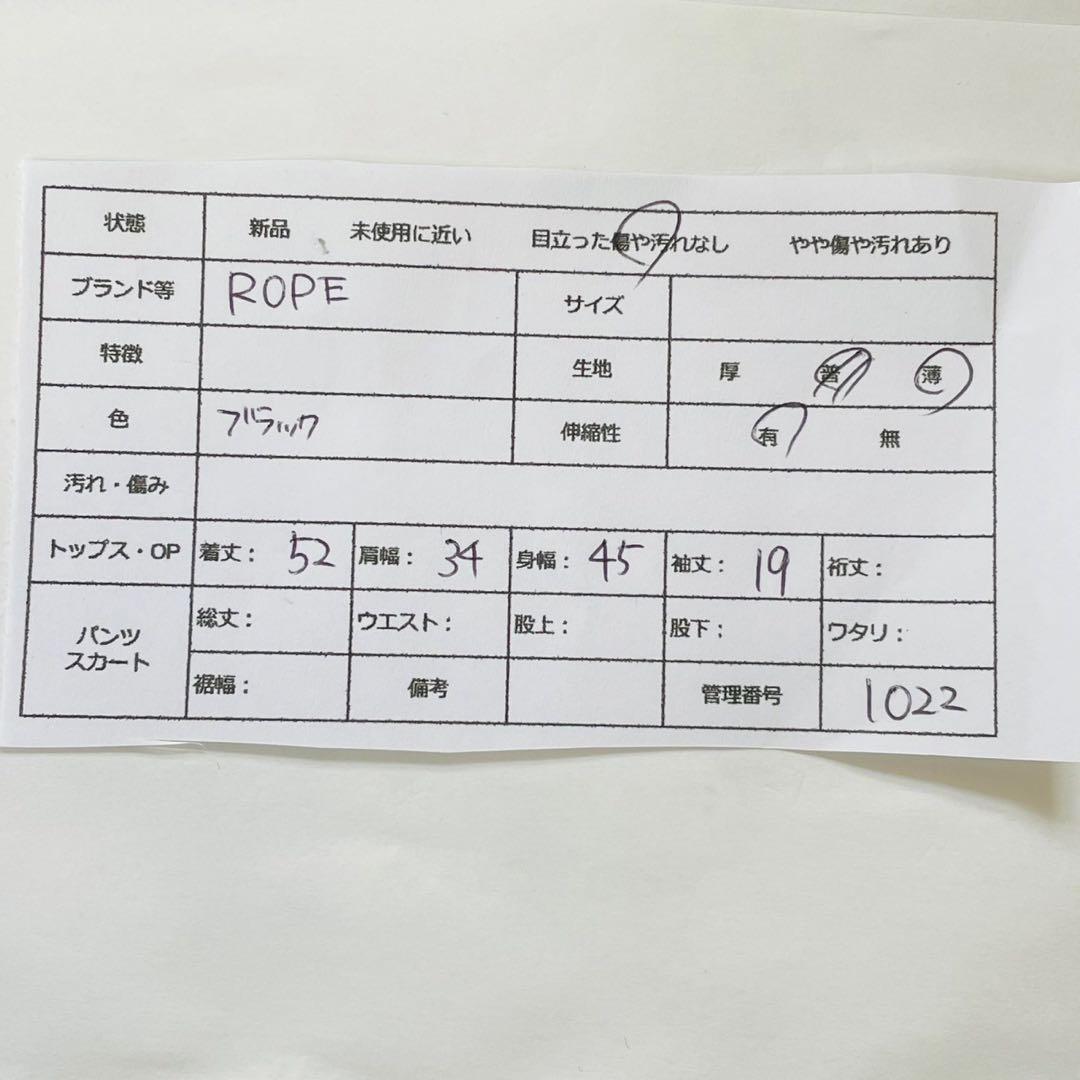 状態 新品 未使用に近い 目立った傷や汚れなし やや傷や汚れあり
ブランド等 ROPE サイズ
特徴 生地 厚 普 薄
色 ブラック 伸縮性 有 無
汚れ・傷み
トップス・OP 着丈： 52 肩幅： 34 身幅： 45 袖丈： 19 裄丈：
パンツ
スカート
総丈： ウエスト： 股上： 股下： ワタリ：
裾幅： 備考 管理番号 1022